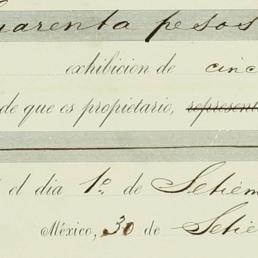 uarenta pesos
exhibicion de cinc
de que es propietario, represent
el dia 1º de Setiem
México, 30 de Setie